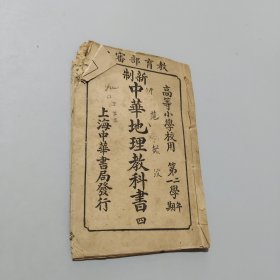 教育部審
高等小學校用 第二學年
期
新制
中華地理教科書
四
上海中華書局發行